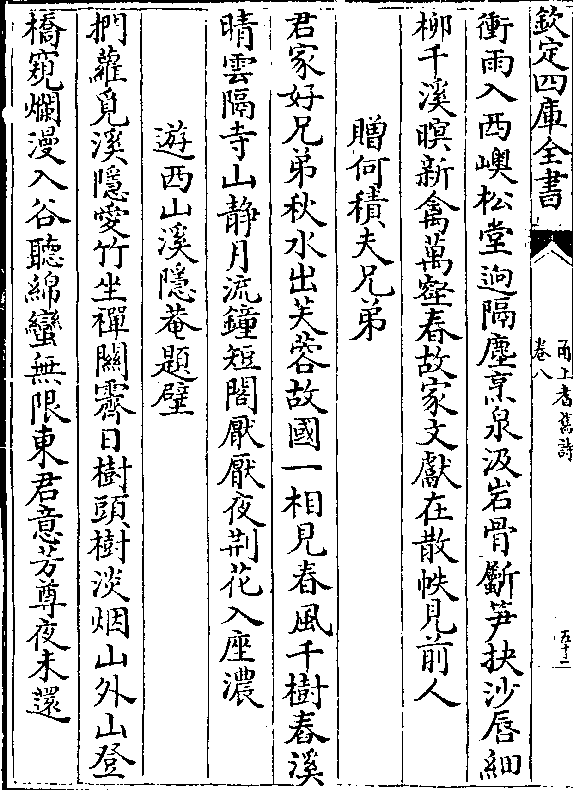 欽定四庫全書
甬上耆舊詩
卷八
五十二
衝雨入西嶼松堂迥隔塵烹泉汲岩骨斸笋抉沙唇細
柳千溪暝新禽萬壑春故家文獻在散帙見前人
贈何積夫兄弟
君家好兄弟秋水出芙蓉故國一相見春風千樹舂溪
晴雲隔寺山靜月流鐘短閣厭厭夜荆花入座濃
遊西山溪隱菴題壁
捫蘿覓溪隱愛竹坐禪關霽日樹頭樹淡烟山外山登
橋窺爛漫入谷聽綿蠻無限東君意芳尊夜未還